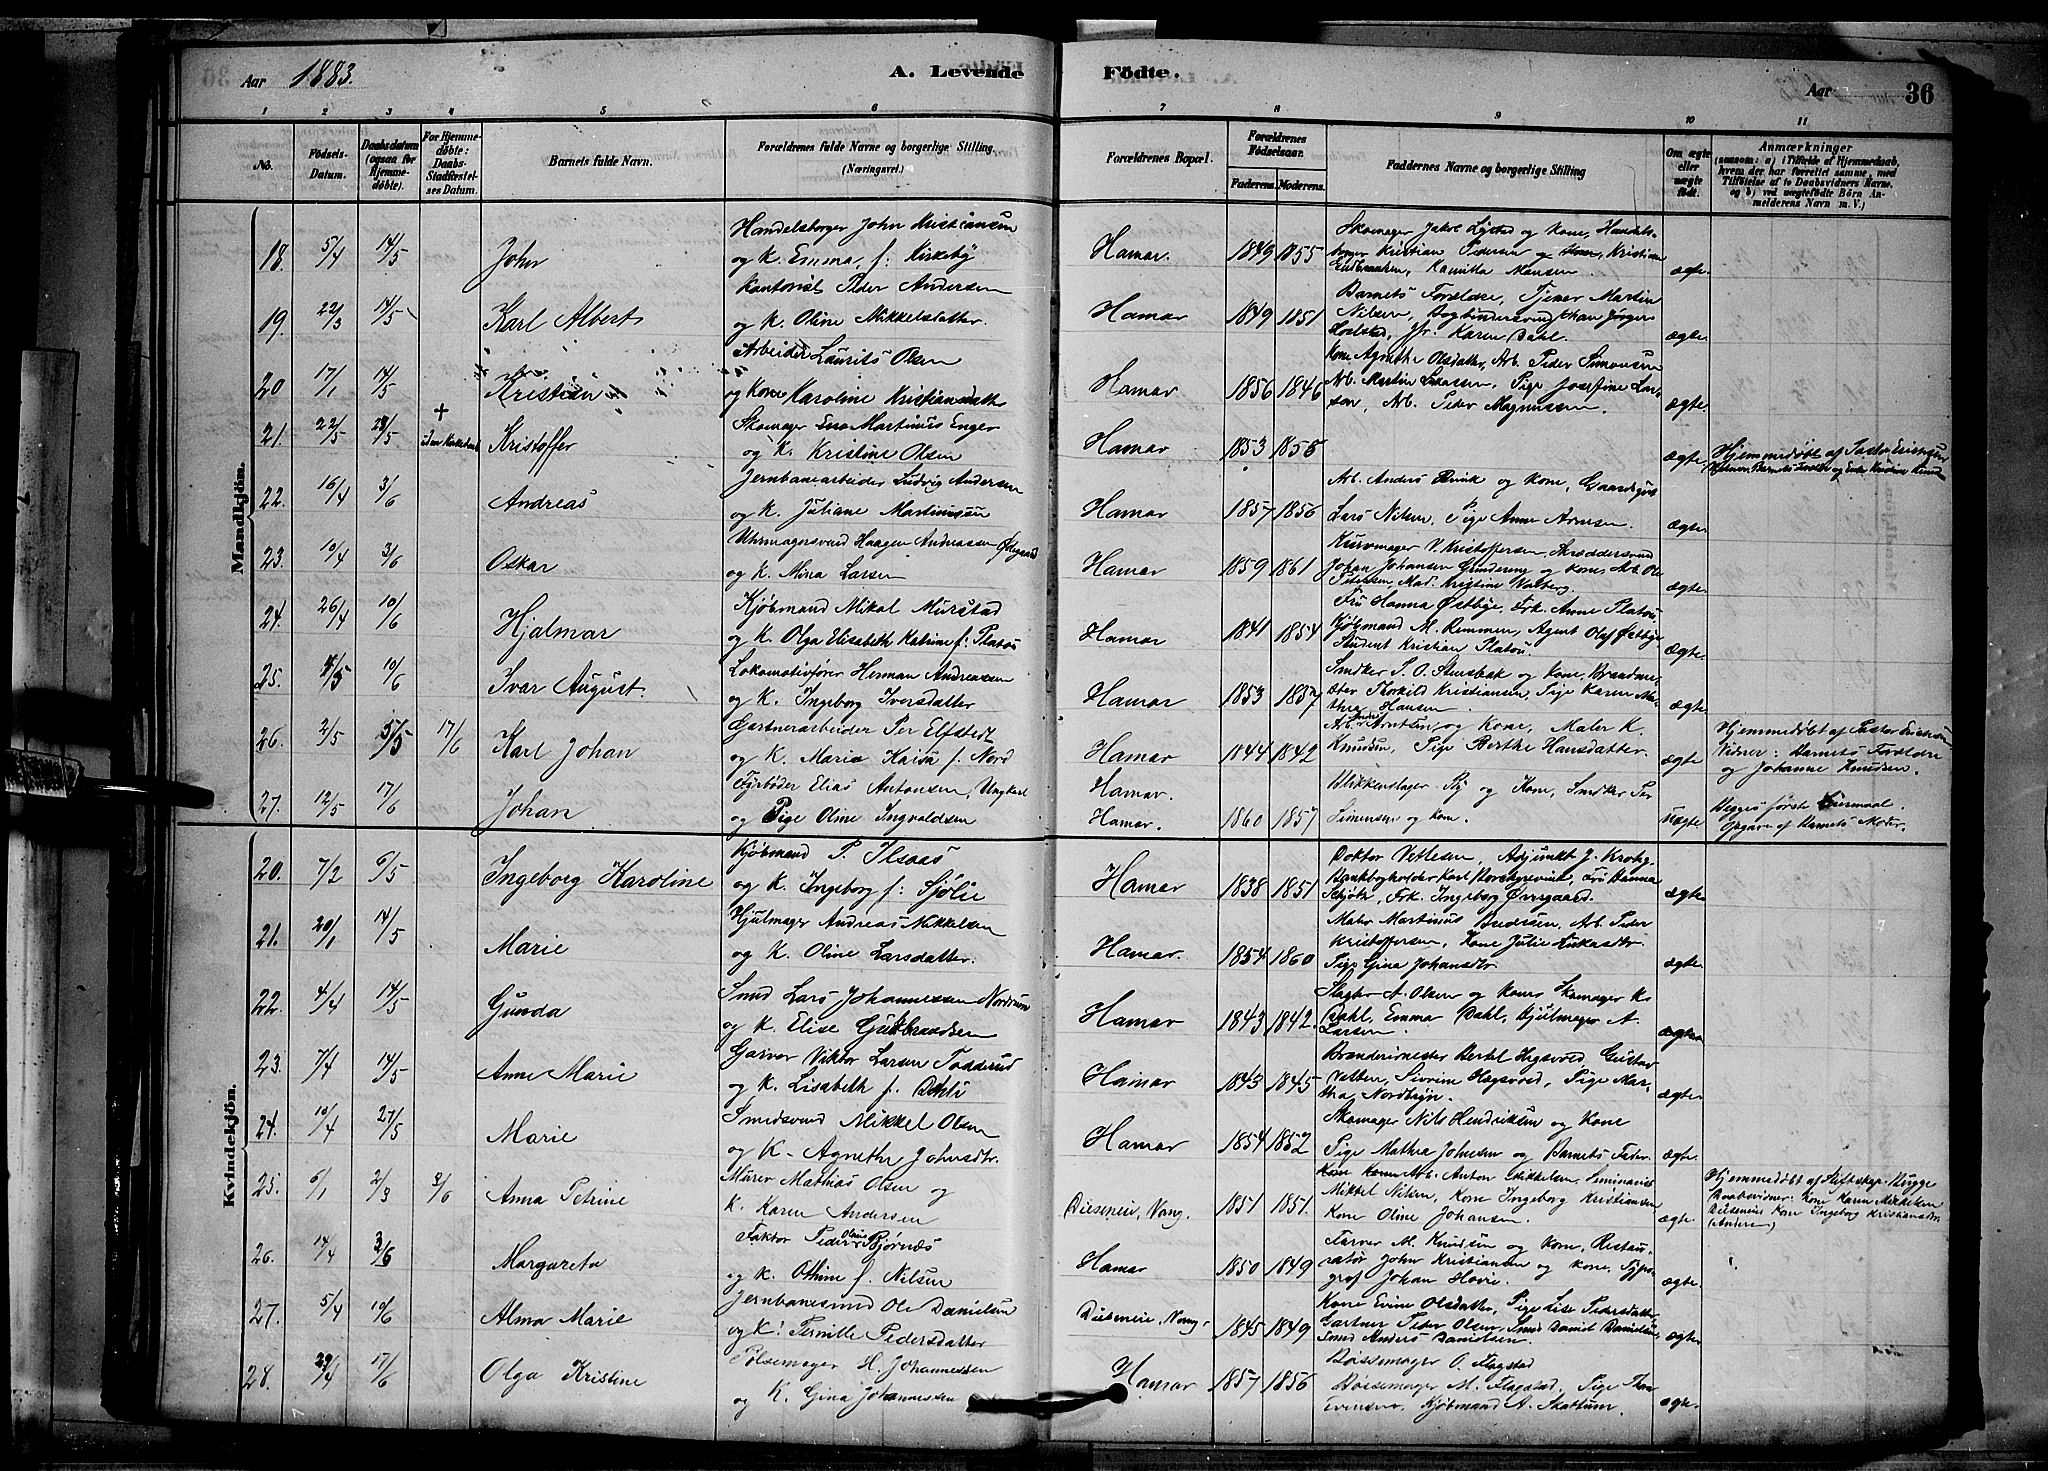 Aar 1883. A. Levende Födte. Aar 36
1 2 3 4 5 6 7 8 9 10 11
No. Födsels-Datum. Daabsdatum (ogsaa for Hjemmedøbte). For Hjemmedøbte: Daabs-Stadfæstelses Datum. Barnets fulde Navn. Forældrenes fulde Navne og borgerlige Stilling (Næringsvei.) Forældrenes Bopæl. Forældrenes Födselsaar. Faderens. Moderens. Faddernes Navne og borgerlige Stilling Om ægte eller uægte født. Anmærkninger (saasom: a) i Tilfælde af Hjemmedaab, hvem der har forrettet samme, med Tilföielse af to Daabsvidners Navne, og b) ved uægtefödte Börn Anmelderens Navn m. V.)
Mandkjön.
18. 5/4 14/5 John
Handelsborger John Kristiansen
og K. Emma, f: Kirkeby
Hamar. 1849 1855
Skomager Jakob Lystad og Kone, Handels-
borger Kristian Pedersen og Kristian
Kamilla Hansen.
ægte.
19. 22/3 14/5 Karl Albert
Kontorist Peder Andersen
og K. Oline Mikkelsdatter.
Hamar 1849 1851
Barnets Forældre, Tjener Martin
Nilsen, Bogbindersvend Johan Jørgen
Jfr. Karen Dahl.
ægte.
20 17/1 14/5 Kristian
Arbeider Laurits Olsen
og Kone Karoline Kristiansdatter
Hamar 1856 1846
Kone Agnethe Olsdatter, Arb. Peder Simonsen
Arb. Martin Larssen, Pige Josefine Lar-
sen, Arb. Peder Magnussen.
ægte.
21. 22/5 23/5 + Kristoffer
Skomager Martinus Enger
og K. Kristine Olsen
Hamar 1853 1858
ægte. Hjemmedøbt af Pastor Erichsen
22. 16/4 3/6 Andreas
Jernbanearbeider Ludvig Andersen
og K. Juliane Martinsen
Hamar 1857 1856
Arb. Anders og Kone, Gaardsgut
Lars Nilsen, Pige Anne Arnesen.
ægte.
23. 10/4 3/6 Oskar
Uhrmagersvend Haagen Andreassen Ødegaard
og K. Mina Larsen
Hamar 1859 1861
Kurvmager V. Kristoffersen, Skræddersvend
Johan Johansen Grindering og Kone, Arb. Ole
Petersen, Mad. Kristine Norberg
ægte.
24. 26/4 10/6 Hjalmar
Kjøbmand Mikal Murstad
og K. Olga Elisabeth Katrine f: Platou
Hamar 1841 1854
Fru Hanna Østbye, Frk. Anne Platou
Kjøbmand M. Remmen, Agent Olaf Østbye
Student Kristian Platou.
ægte.
25. 4/5 10/6 Ivar August
Lokomotivfører Herman Andreassen
og K. Ingeborg Iversdatter
Hamar 1853 1857
Snedker S. O. Stensbak og Kone, Brandme-
ster Thorkild Kristiansen, Pige Karen Ma-
threa Hansen.
ægte.
26. 2/5 5/5 17/6 Karl Johan
Gartnerarbeider Per Elfstedt
og K. Maria Kaisa f. Nord
Hamar 1844 1842
Arb. Arntsen og Kone, Maler K.
Knudsen, Pige Berthe Hansdatter.
ægte Hjemmedøbt af Pastor Erichsen
Vidner: Barnets Forældre
og Johanne Knudsen.
27. 12/5 17/6 Johan
Fyrbøder Elias Antonsen, Ungkarl
og Pige Oline Ingvaldsen
Hamar.
Hamar. 1860 1857
Blikkenslager Ry og Kone, Snedker Per
Simensen og Kone.
uægte Begges første Leiermaal.
Opgave af Barnets Moder.
Kvindekjön.
20. 7/2 6/5 Ingeborg Karoline
Kjøbmand P. Ilsaas
og K. Ingeborg f: Sjølie
Hamar 1838 1851
Doktor Vetlesen, Adjunkt J. Krohg,
Bankbogholder Karl Fru Hanna
Schjøtz, Frk. Ingeborg Øvergaard.
ægte.
21. 20/1 14/5 Marie
Hjulmager Andreas Mikkelsen
og K. Oline Larsdatter.
Hamar. 1854 1860
Maler Martinus Andersen, Arb. Peder
Kristoffersen, Kone Julie Lukasdtr
Pige Gina Johansdtr.
ægte.
22. 4/4 14/5 Gunda
Smed Lars Johannessen Nordrum
og K. Elise Gulbrandsen
Hamar 1843 1842.
Slagter A. Olsen og Kone, Skomager K.
Dahl, Emma Dahl, Hjulmager A.
Larsen.
ægte
23. 7/4 14/5 Anne Marie
Garver Viktor Larsen Todderud
og K. Lisabeth f. Dahli
Hamar 1843 1845
Branderimester Bertel Hegsvold, Gustav
Vetten, Sivrine Hegsvold, Pige Mar-
tha Nordbryn.
ægte.
24. 10/4 27/5 Marie
Smedsvend Mikkel Olsen
og K. Agnethe Johnsdtr.
Hamar 1854 1852
Skomager Nils Hendriksen og Kone
Pige Mathea Johnsen og Barnets Fader.
ægte.
25. 6/1 2/3 3/6 Anna Petrine
Murer Mathias Olsen og
K. Karen Andersen
Diesenei, Vang. 1851 1851.
Arb. Anton Mikkelsen, Seminarist
Mikkel Nilsen, Kone Ingeborg Kristiansen
Kone Oline Johansen.
ægte. Hjemmedøbt af Stiftskap. Bugge
Daabsvidner: Kone Karen Mikkelsen
Diesenei, Kone Ingeborg Kristiansdtr
26. 14/4 3/6 Margareta
Faktor Peder Olaus Bjørnæs
og K. Othine f. Nilsen
Hamar 1850 1849
Farver M. Knudsen og Kone, Restau-
ratør John Kristiansen og Kone, Typo-
graf Johan Hovie.
ægte
27. 5/4 10/6 Alma Marie
Jernbanesmed Ole Danielsen
og K: Pernille Pedersdatter
Diesenei, Vang. 1845 1849
Kone Evine Olsdatter, Pige Lise Pedersdatter
Gartner Peder Olsen, Smed Daniel Danielsen
Smed Anders Danielsen.
ægte
28. 29/4 17/6 Olga Kristine
Pølsemager H. Johannessen
og K. Gina Johannessen
Hamar 1857 1856
Bøssemager O. Flagstad
Bøssemager M. Flagstad, Pige Thea
Evensen, Kjøbmand A. Skattum.
ægte.